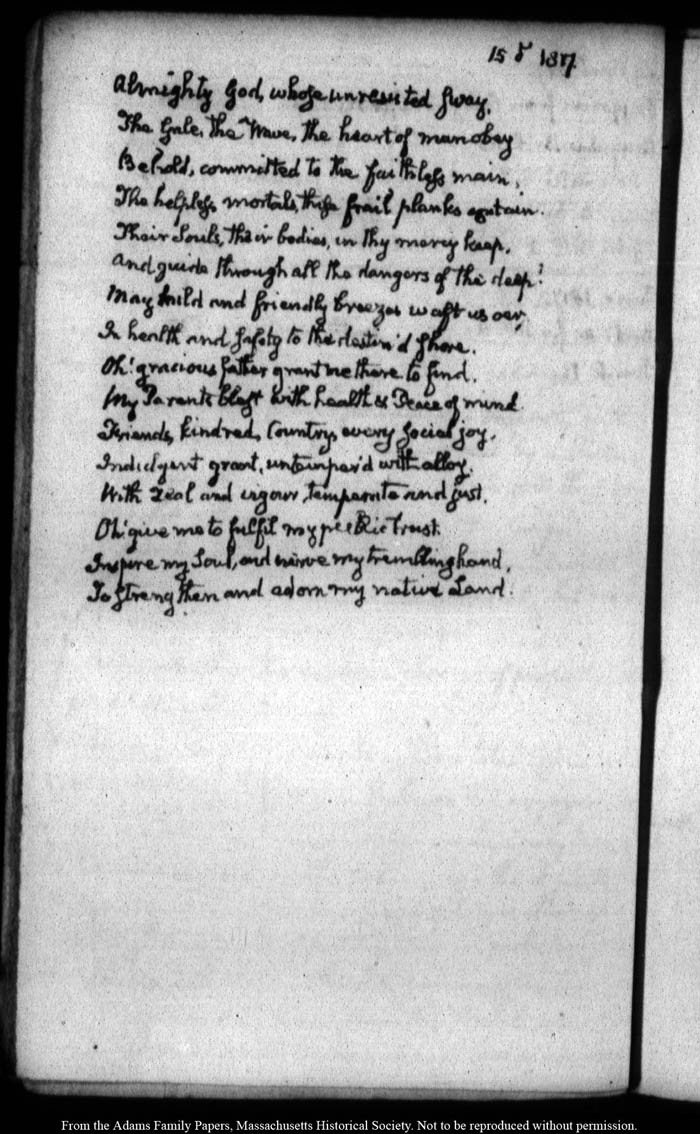 15 1817.
Almighty God, whose unresisted sway,
The Gale, the Wave, the heart of man obey
Behold, committed to the faithless main,
The helpless mortals, these frail planks sustain.
Their Souls, their bodies, in thy mercy keep,
And guide through all the dangers of the deep!
May mild and friendly breezes waft us oer,
In health and safety to the destin'd shore.
Oh! gracious father grant me there to find,
My Parents blest with health & Peace of mind
Friends, kindred, Country, every social joy,
Indulgent grant, untemper'd with alloy.
With zeal and vigour, temperate and just,
Oh! give me to fulfil my public trust.
Inspire my Soul, and nerve my trembling hand,
To strengthen and adorn my native Land.
From the Adams Family Papers, Massachusetts Historical Society. Not to be reproduced without permission.